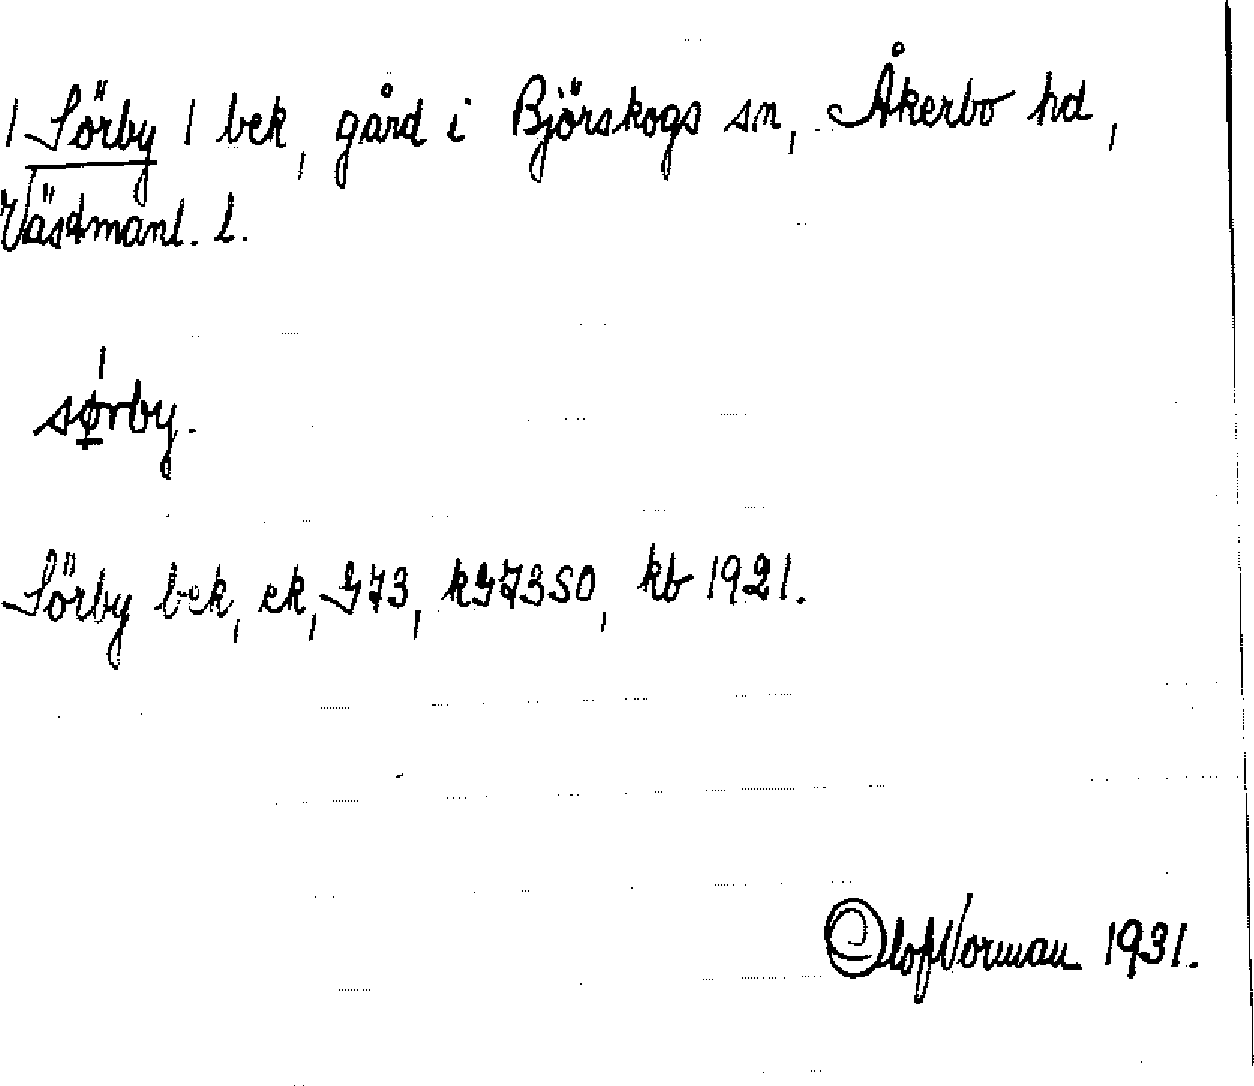 1 Sörby 1 bek, gård i Björskogs sn, Åkerbo hd,
Västmanl. l.
sørby.
Sörby bek, ek, G73, kG73SO, kb 1921.
Olof Norman 1931.